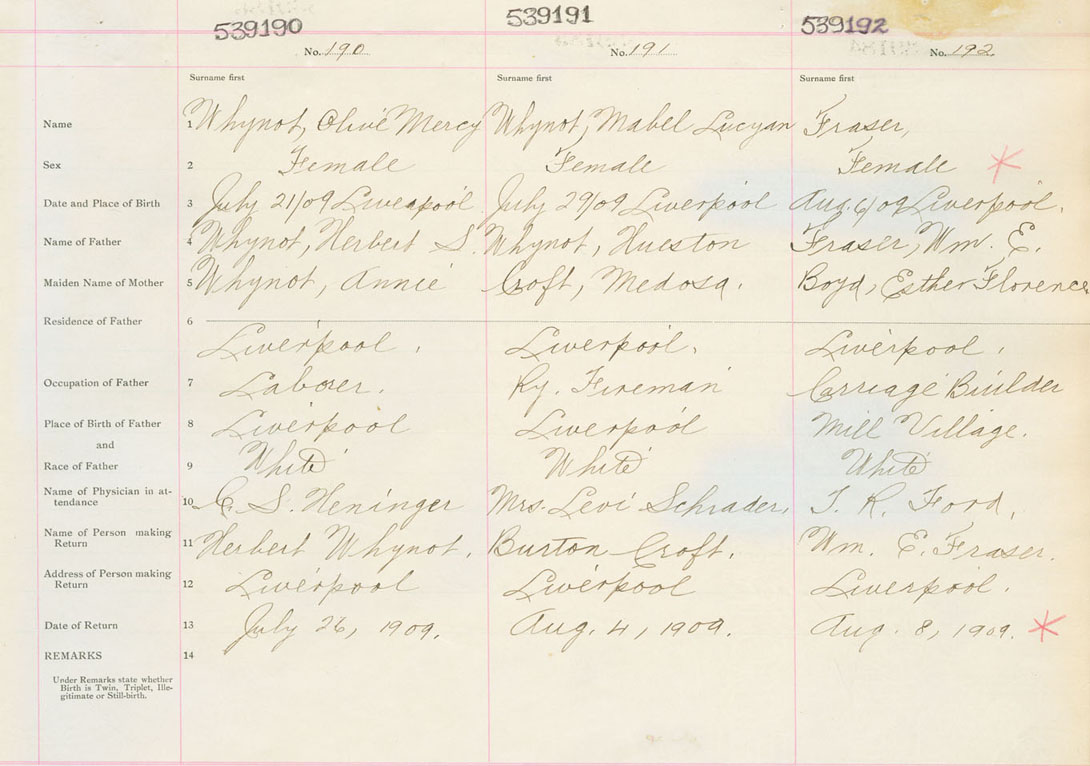 539190 539191 539192
No. 190 No. 191 No. 192
Surname first Surname first Surname first
Name 1 Whynot, Olive Mercy Whynot, Mabel Lucyan Fraser,
Sex 2 Female Female Female *
Date and Place of Birth 3 July 21/09 Liverpool. July 29/09 Liverpool Aug. 6/09 Liverpool.
Name of Father 4 Whynot, Herbert S. Whynot, Hueston Fraser, Wm. E.
Maiden Name of Mother 5 Whynot, Annie Croft, Medosa. Boyd, Esther Florence
Residence of Father 6
Liverpool. Liverpool. Liverpool.
Occupation of Father 7 Laborer. Ry. Fireman Carriage Builder
Place of Birth of Father 8 Liverpool Liverpool Mill Village.
and
Race of Father 9 White White White
Name of Physician in at-
tendance 10 C. S. Heninger Mrs. Levi Schrader, T. R. Ford,
Name of Person making
Return 11 Herbert Whynot. Burton Croft. Wm. E. Fraser.
Address of Person making
Return 12 Liverpool Liverpool Liverpool.
Date of Return 13 July 26, 1909. Aug. 4, 1909. Aug. 8, 1909. *
REMARKS 14
Under Remarks state whether
Birth is Twin, Triplet, Ille-
gitimate or Still-birth.